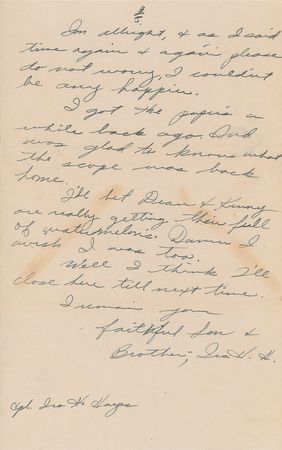 2/5.
I'm allright, & as I said
time again & again please
do not worry, I couldn't
be any happier.
I got the papers a
while back ago. And
was glad to know what
the scope was back
home.
I'll bet Dean & Kenny
are really getting their full
of watermelons. Damn I
wish I was too.
Well I think I'll
close here till next time.
I remain your
faithful Son &
Brother; Ira H. H.
Cpl. Ira H. Hayes